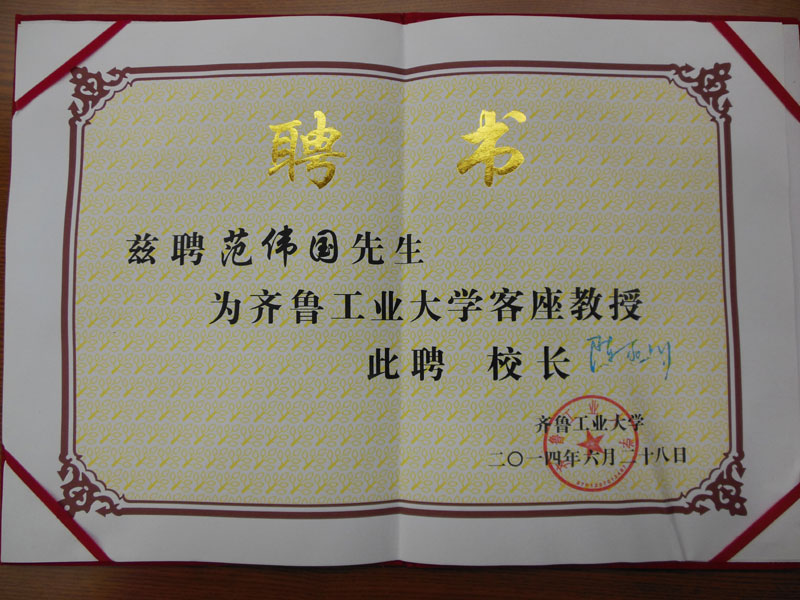 聘书
兹聘范伟国先生
为齐鲁工业大学客座教授
此聘 校长
齐鲁工业大学
二〇一四年六月二十八日